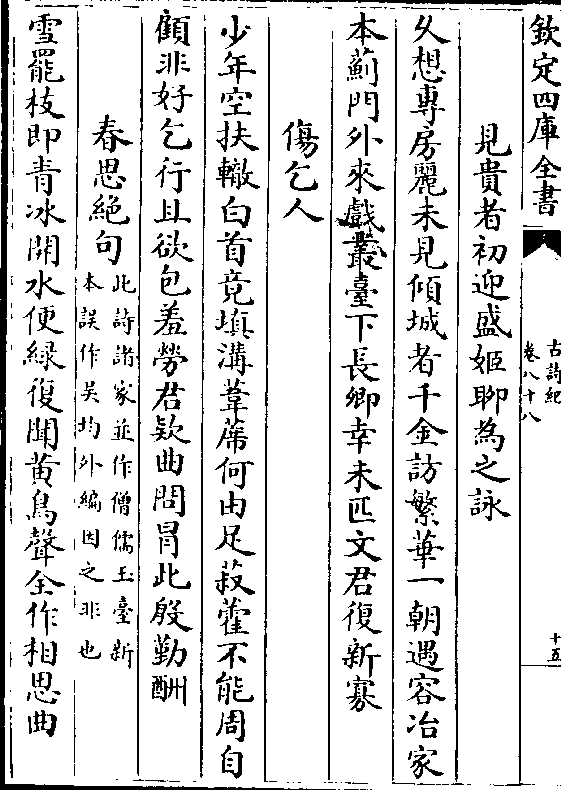 欽定四庫全書
古詩紀
卷八十八
十五
見貴者初迎盛姬聊為之詠
久想專房麗未見傾城者千金訪繁華一朝遇容冶家
本薊門外來戲叢臺下長卿幸未匹文君復新寡
傷乞人
少年空扶轍白首竟填溝葦蓆何由足菽藿不能周自
顧非好乞行且欲包羞勞君款曲問冐此殷勤酬
春思絶句
此詩諸家並作僧儒玉臺新
本誤作吴均外編因之非也
雪罷枝即青冰開水便綠復聞黄鳥聲全作相思曲